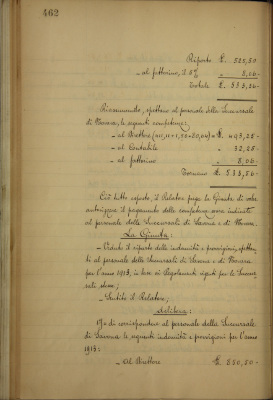 462
Riporto £. 525,50
- al fattorino, il 5% " 8,06-
Totale £. 533,56-
Riassumendo, spettano al personale della Succursale
di Novara, le seguenti competenze:
- al Direttore £ 493,25-
- al Contabile " 32,25-
- al fattorino " 8,06-
Tornano £. 533,56-
Ciò tutto esposto, il Relatore prega la Giunta di voler
autorizzare il pagamento delle competenze sopra indicate
al personale delle Succursali di Savona e di Novara.
La Giunta:
- Veduto il riparto delle indennità e provvigioni, spettan-
ti al personale delle Succursali di Savona e di Novara
per l'anno 1913, in base ai Regolamenti vigenti per le Succur-
sali stesse;
- Sentito il Relatore;
delibera:
Di corrispondere al personale della Succursale
di Savona le seguenti indennità e provvigioni per l'anno
1913:
- Al Direttore £.